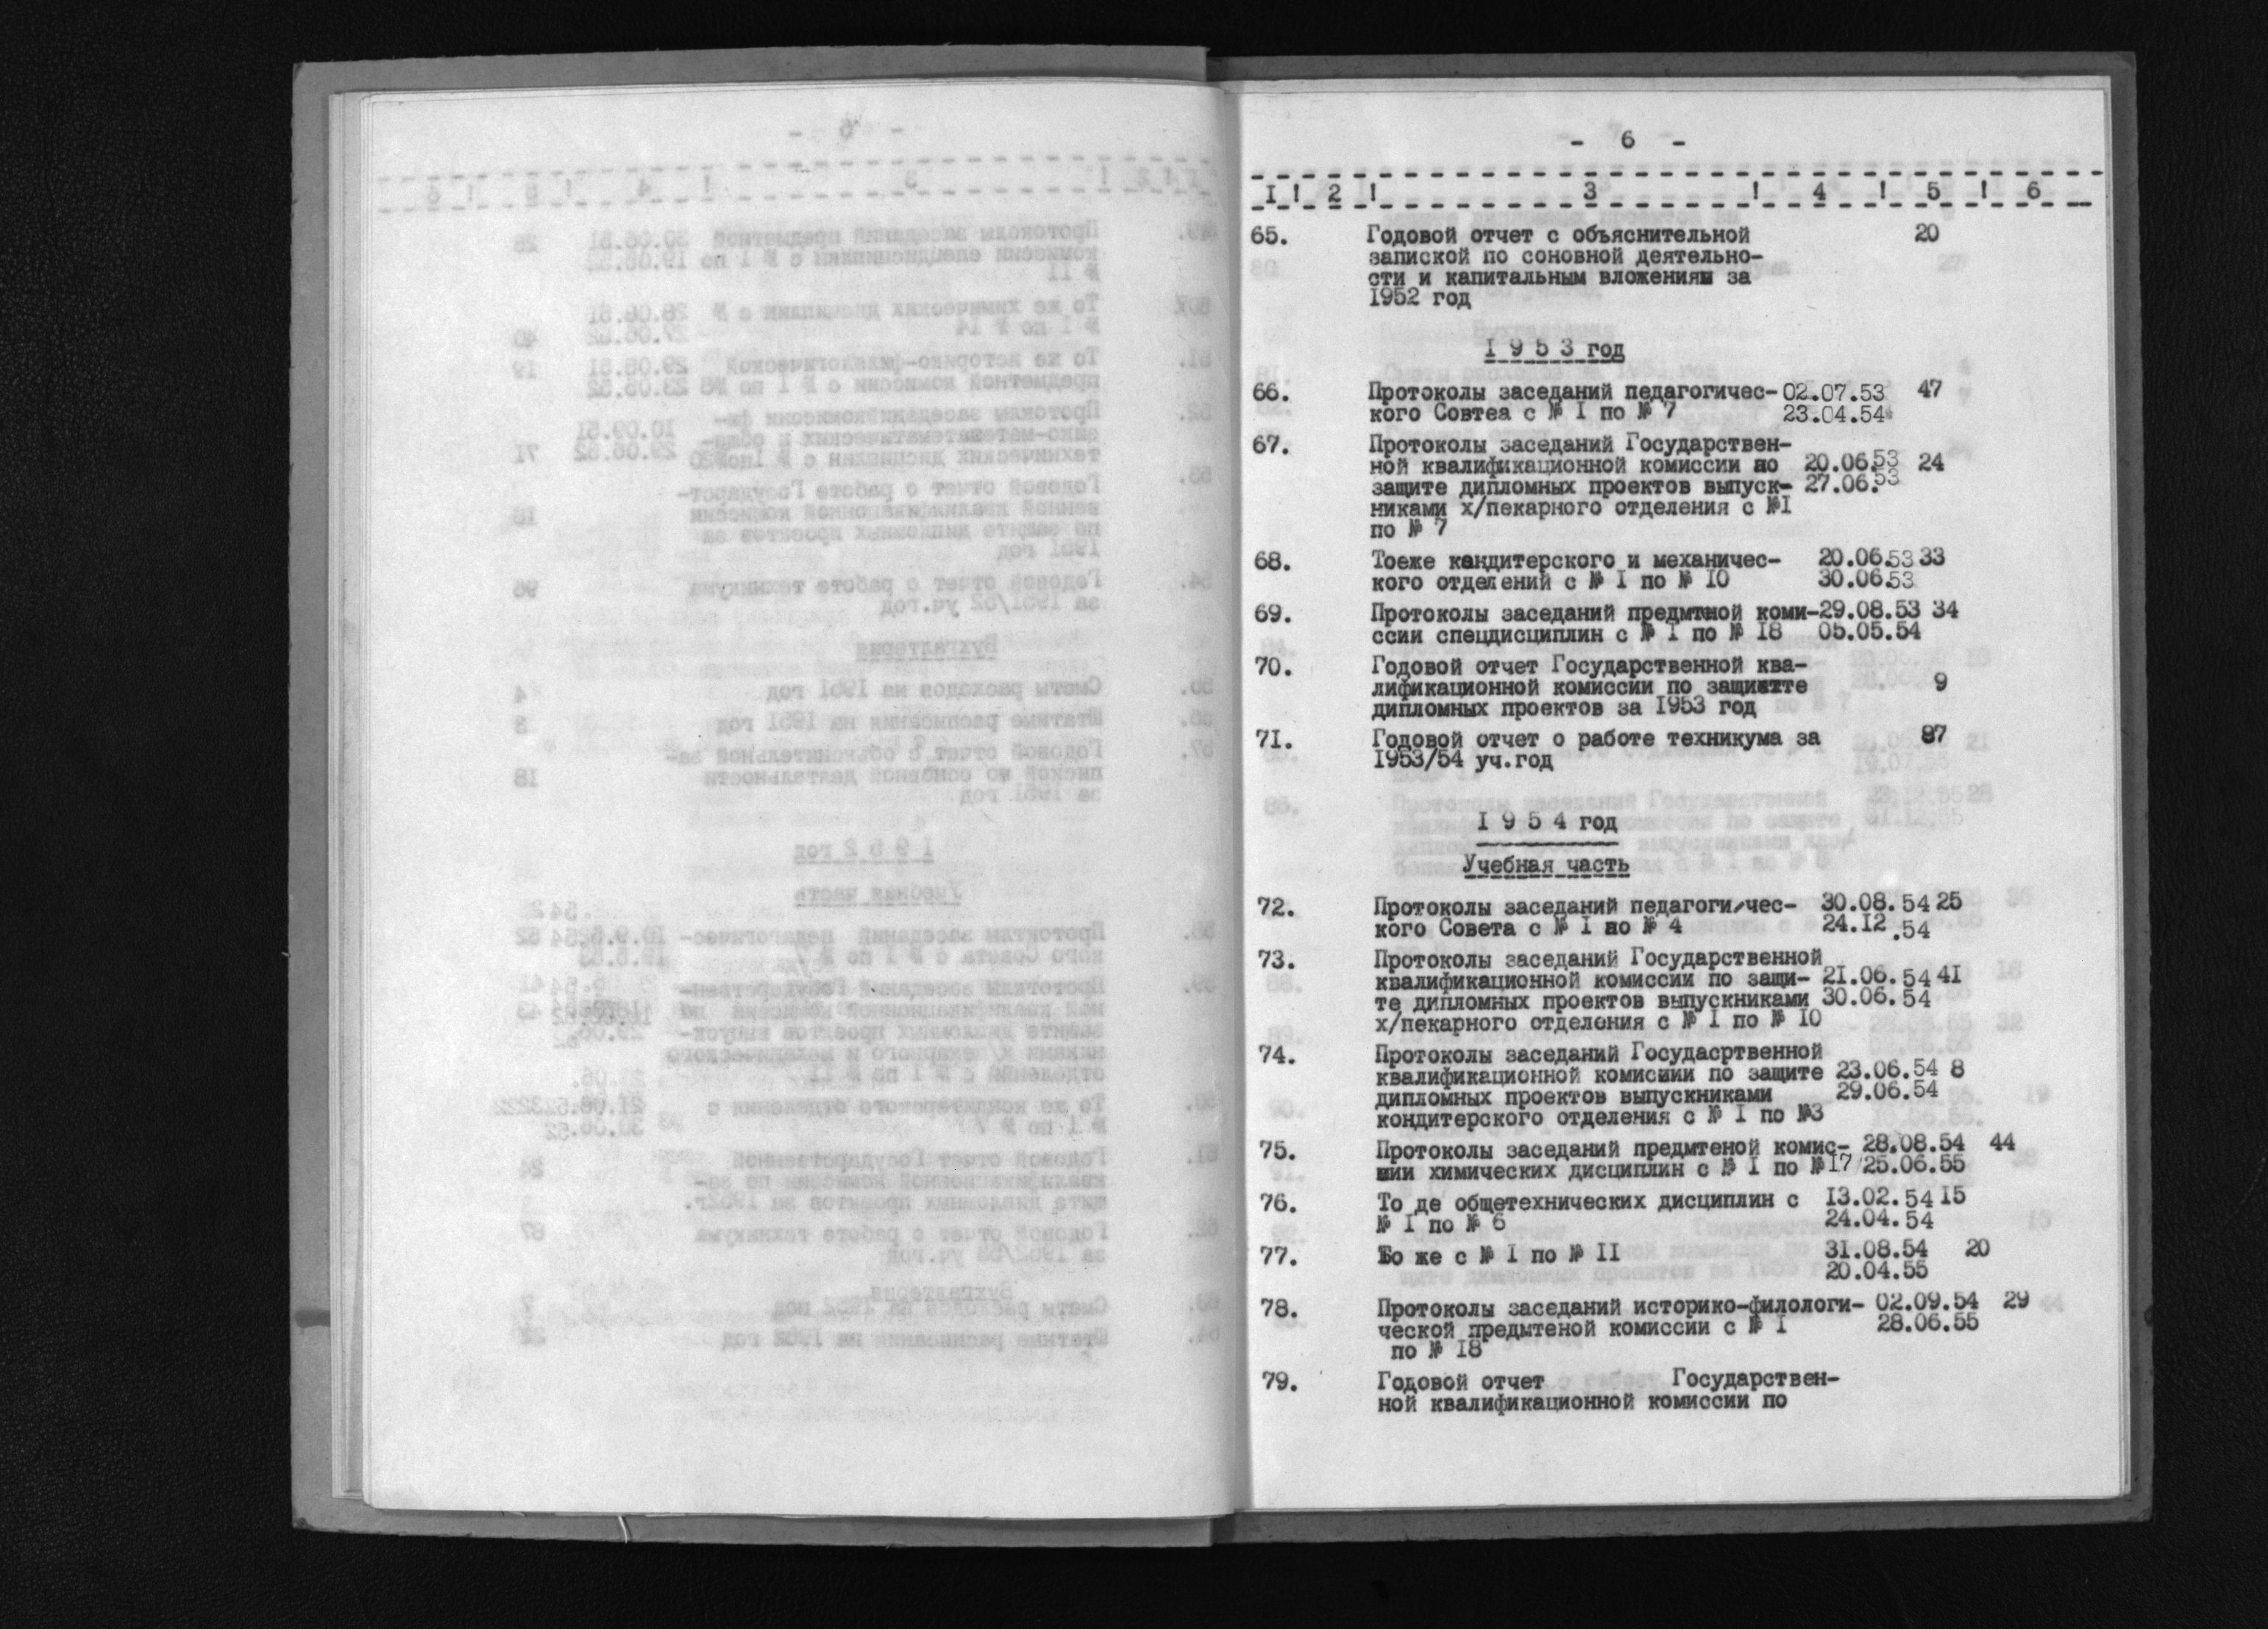 - 6 -
I ! 2 ! 3 ! 4 ! 5 ! 6
65. Годовой отчет с объяснительной 20
запиской по соновной деятельно-
сти и капитальным вложениям за
1952 год
I 9 5 3 год
66. Протоколы заседаний педагогичес- 02.07.53 47
кого Совтеа с № I по № 7 23.04.54
67. Протоколы заседаний Государствен-
ной квалификационной комиссии по 20.06.53 24
защите дипломных проектов выпуск- 27.06.53
никами х/пекарного отделения с №I
по № 7
68. Тоеже кандитерского и механичес- 20.06.53 33
кого отделений с № I по № IO 30.06.53
69. Протоколы заседаний предмтной коми- 29.08.53 34
ссии спецдисциплин с № I по № I8 05.05.54
70. Годовой отчет Государственной ква-
лификационной комиссии по защитте 9
дипломных проектов за I953 год
7I. Годовой отчет о работе техникума за 87
I953/54 уч.год
I 9 5 4 год
Учебная часть
72. Протоколы заседаний педагоги/чес- 30.08.54 25
кого Совета с № I по № 4 24.I2.54
73. Протоколы заседаний Государственной
квалификационной комиссии по защи- 2I.06.54 4I
те дипломных проектов выпускниками 30.06.54
х/пекарного отделения с № I по № IO
74. Протоколы заседаний Госудасртвенной
квалификационной комисиии по защите 23.06.54 8
дипломных проектов выпускниками 29.06.54
кондитерского отделения с № I по №3
75. Протоколы заседаний предмтеной комис- 28.08.54 44
шии химических дисциплин с № I по №17 25.06.55
76. То де общетехнических дисциплин с I3.02.54 I5
№ I по № 6 24.04.54
77. То же с № I по № II 3I.08.54 20
20.04.55
78. Протоколы заседаний историко-филологи- 02.09.54 29
ческой предмтеной комиссии с № I 28.06.55
по № I8
79. Годовой отчет Государствен-
ной квалификационной комиссии по